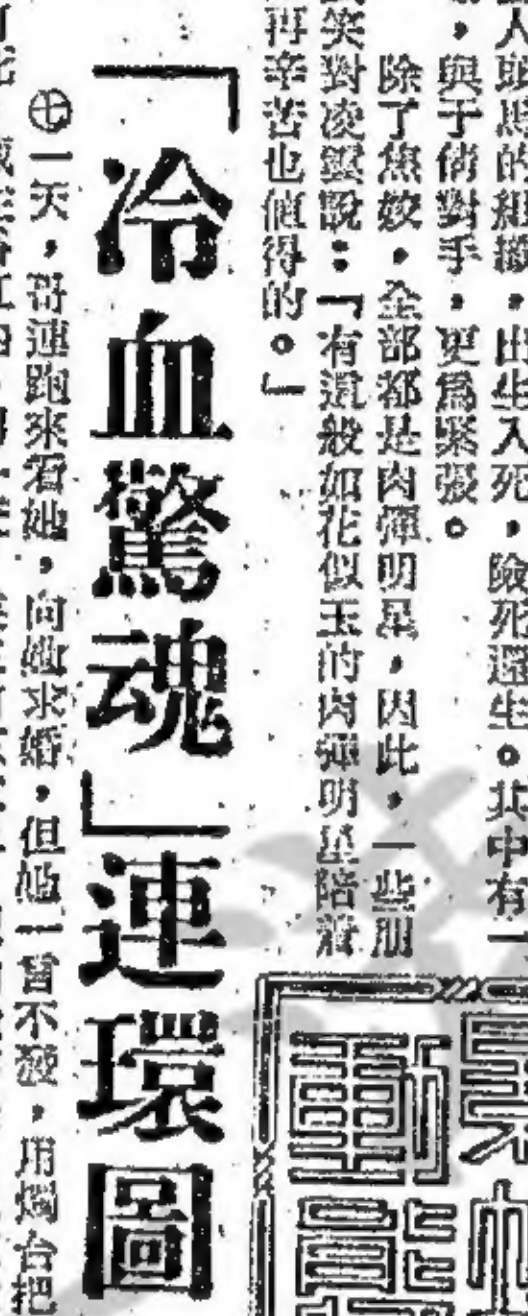 人頭馬的組織，出生入死，險死還生。其中有一
，與于倩對手，更爲緊張。
除了焦姣，全部都是肉彈明星，因此，一些朋
笑對凌雲說：「有這般如花似玉的肉彈明星陪着
再辛苦也值得的。」
「冷血驚魂」連環圖
㊆一天，哥連跑來看她，向她求婚，但她一言不發，用燭台把